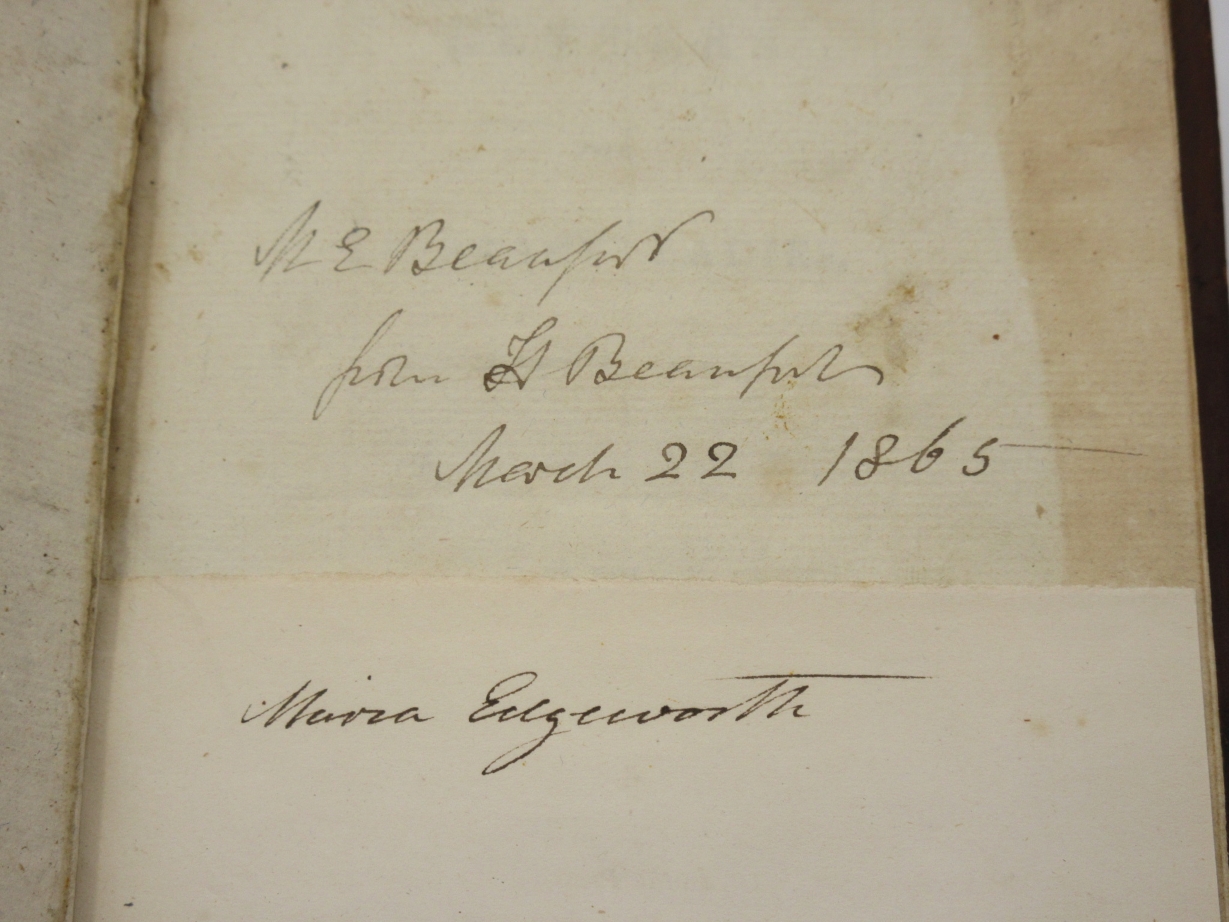 M E Beaufort
from H Beaufort
March 22 1865
Maria Edgeworth